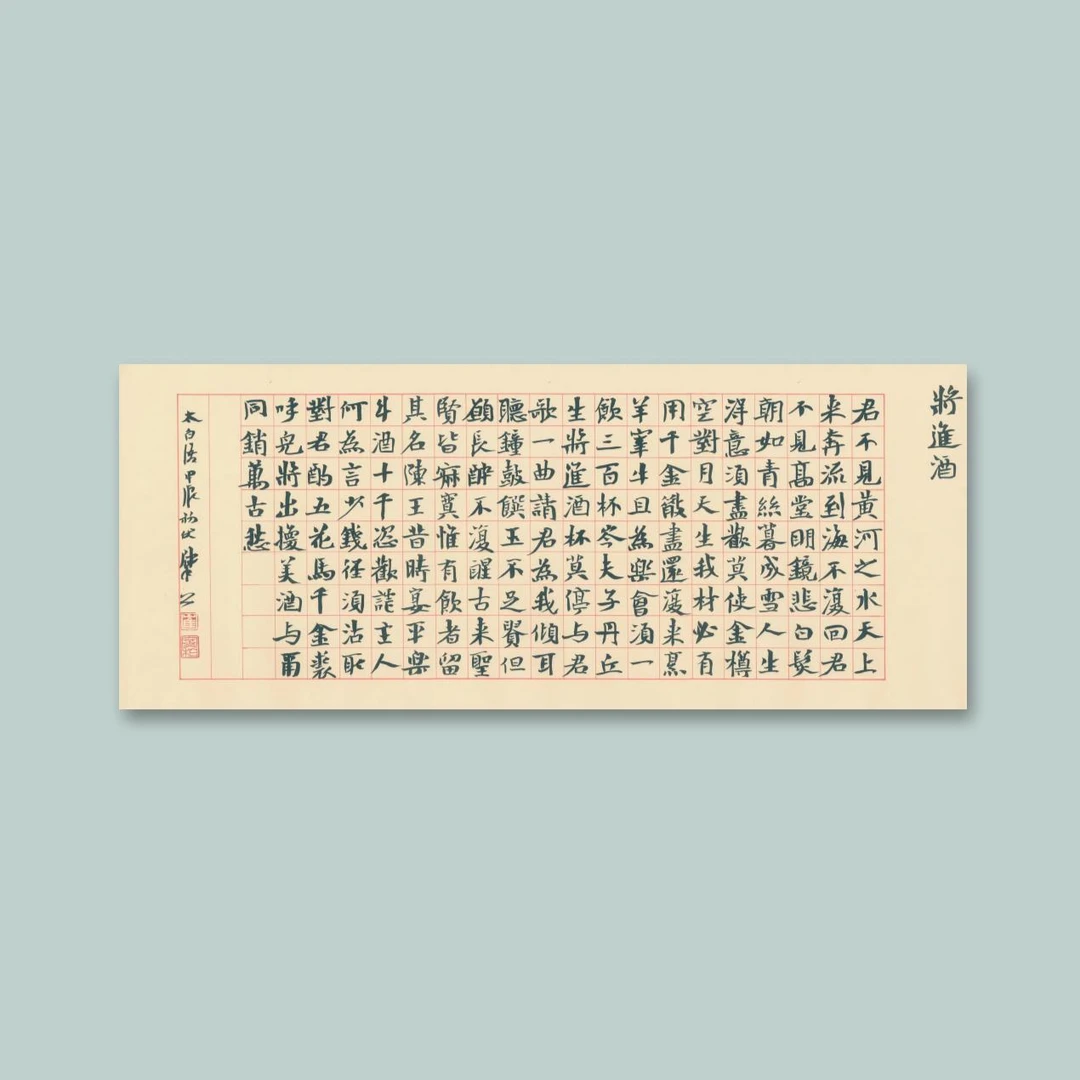 將進酒
君不見黃河之水天上
来奔流到海不復回君
不見高堂明鏡悲白髮
朝如青絲暮成雪人生
得意須盡歡莫使金樽
空對月天生我材必有
用千金散盡還復来烹
羊宰牛且為樂會須一
飲三百杯岑夫子丹丘
生將進酒杯莫停与君
歌一曲請君為我傾耳
聽鐘鼓饌玉不足貴但
願長醉不復醒古来聖
賢皆寂寞惟有飲者留
其名陳王昔時宴平樂
斗酒十千恣歡謔主人
何為言少錢徑須沽取
對君酌五花馬千金裘
呼兒將出換美酒与爾
同銷萬古愁
太白詩甲辰初伏